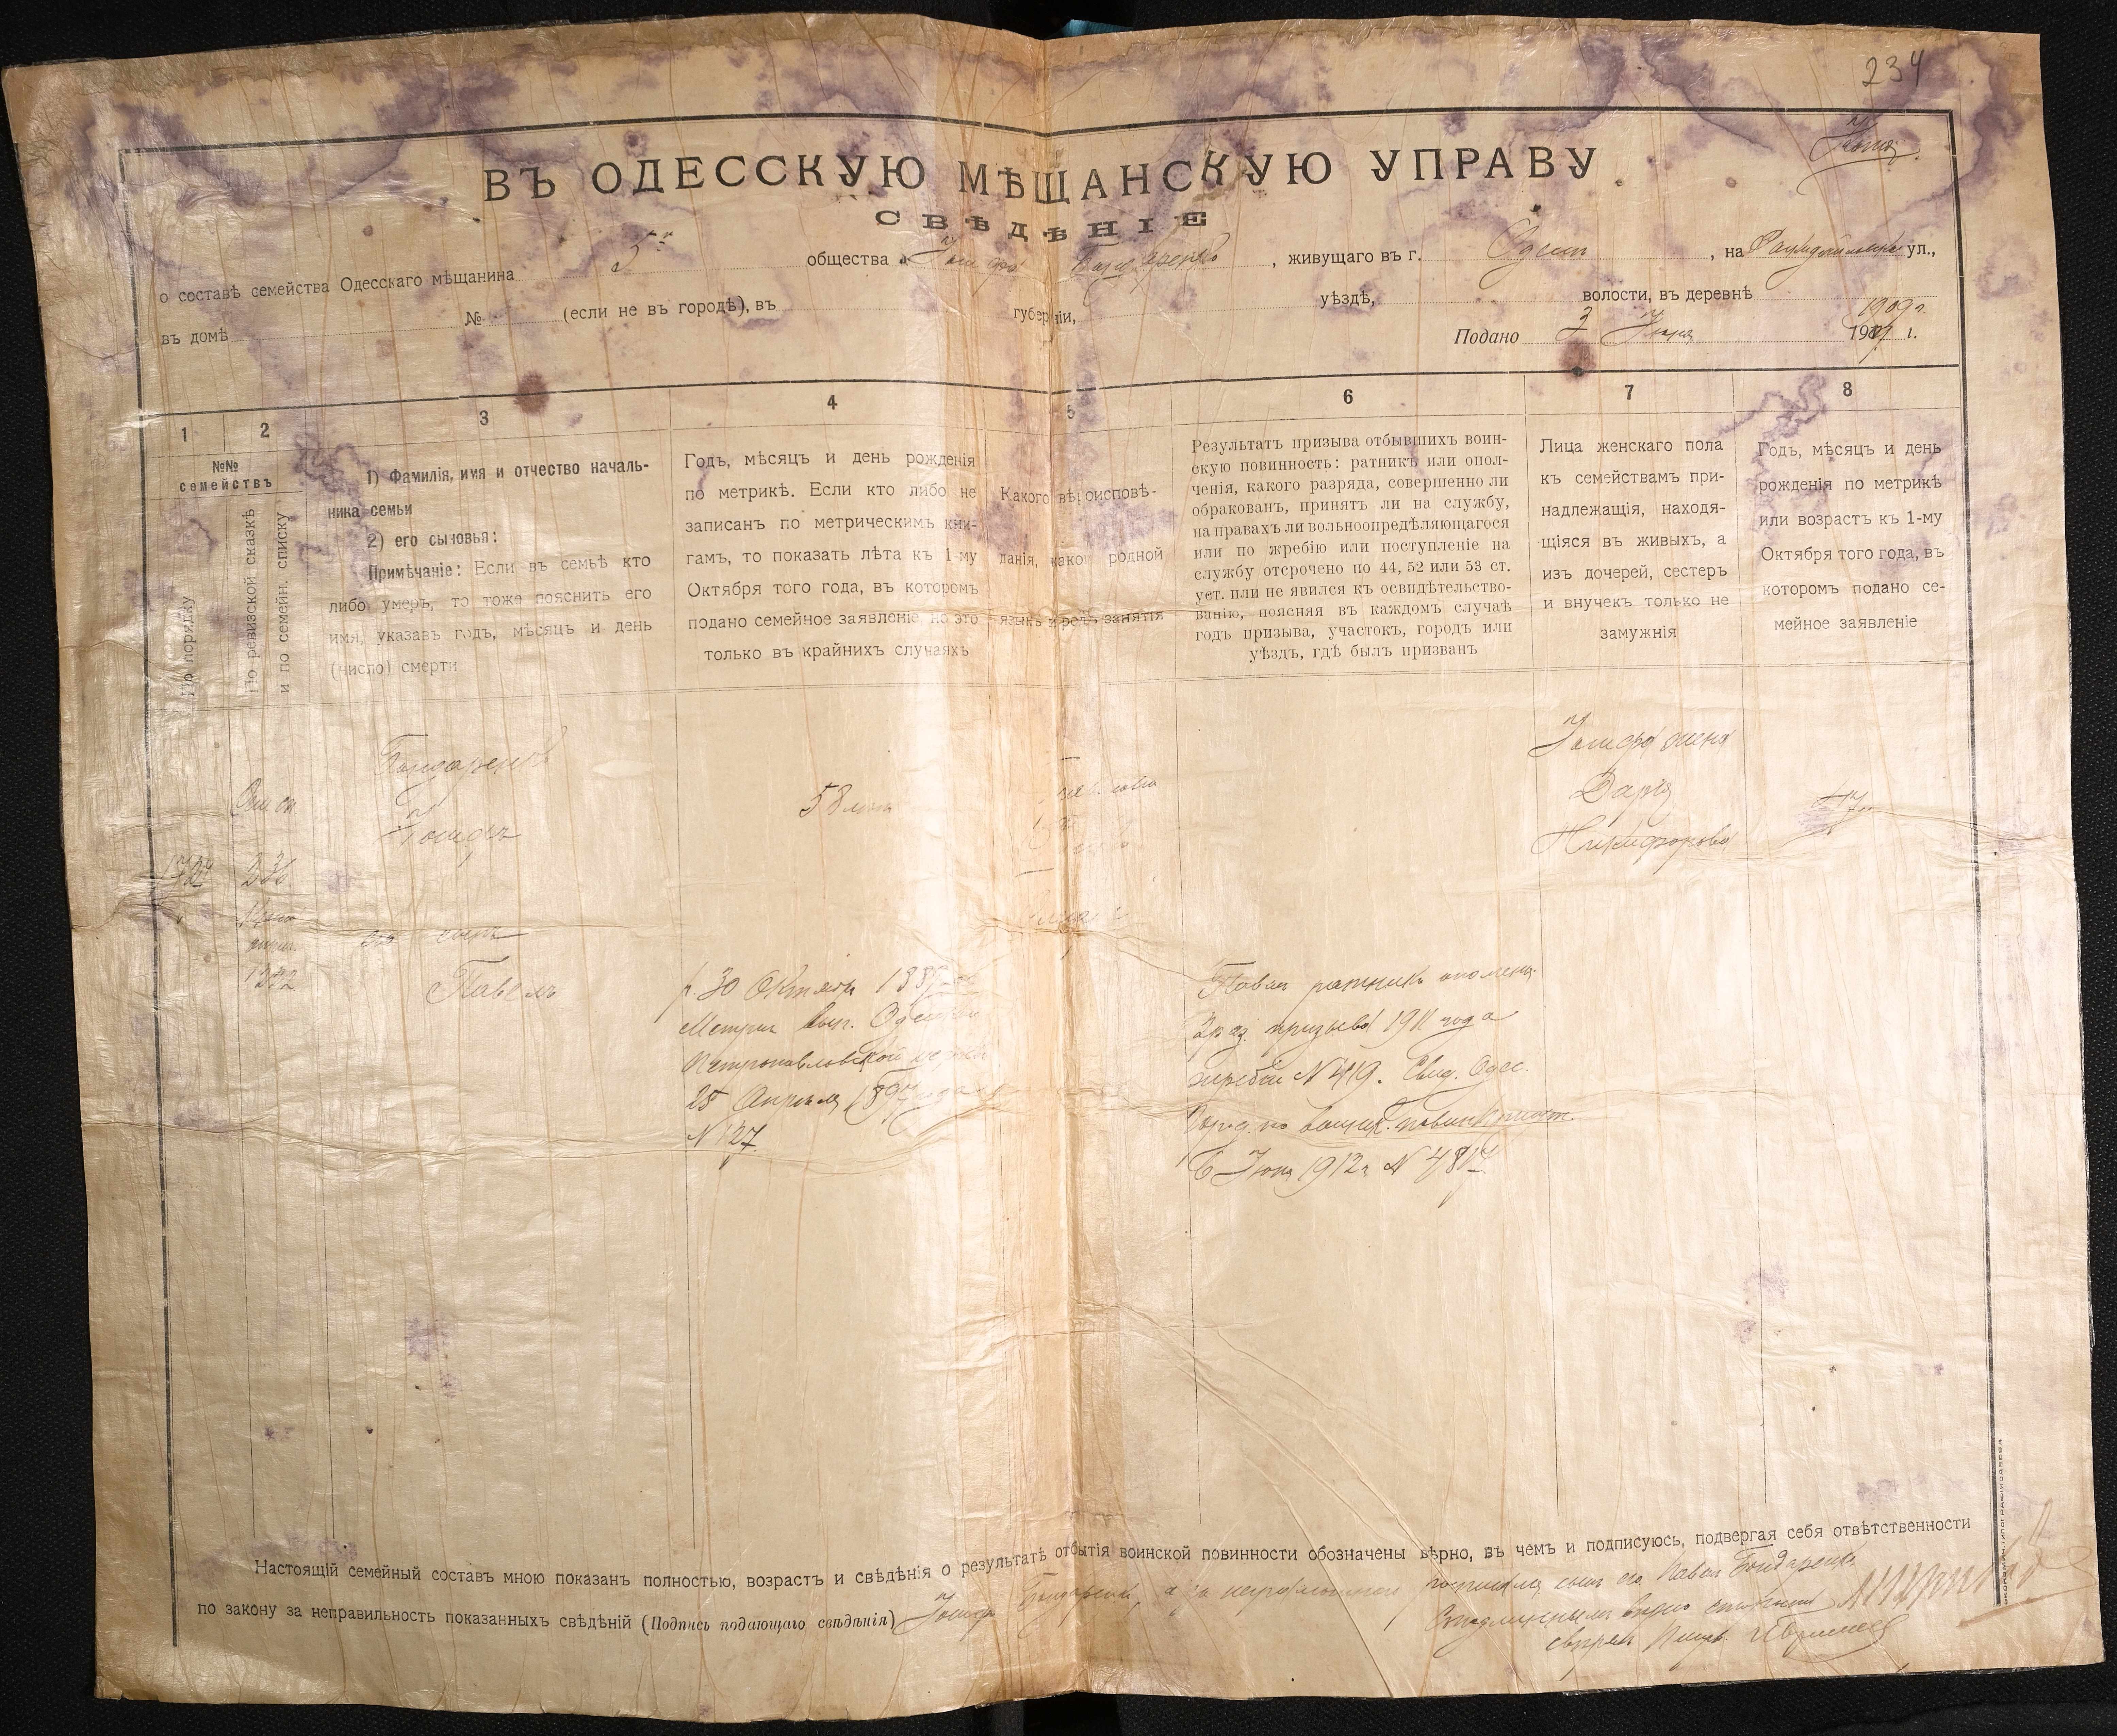 234
ВЪ ОДЕССКУЮ МѢЩАНСКУЮ УПРАВУ
СВѢДѢНІЕ
о составѣ семейства Одесскаго мѣщанина общества Бондаренко, живущаго въ г. Одессѣ, на ул.,
въ домѣ № (если не въ городѣ), въ губерніи, уѣздѣ, волости, въ деревнѣ
1909 г.
Подано 190 г.
1 2 3 4 5 6 7 8
№№ семействъ
По порядку
По ревизской сказкѣ и по семейн. списку
1) Фамилія, имя и отчество началь-
ника семьи
2) его сыновья:
Примѣчаніе: Если въ семьѣ кто
либо умеръ, то тоже пояснить его
имя, указавъ годъ, мѣсяцъ и день
(число) смерти
Годъ, мѣсяцъ и день рожденія
по метрикѣ. Если кто либо не
записанъ по метрическимъ кни-
гамъ, то показать лѣта къ 1-му
Октября того года, въ которомъ
подано семейное заявленіе но это
только въ крайнихъ случаяхъ
Какого вѣроисповѣ-
данія, какой родной
языкъ и родъ занятія
Результатъ призыва отбывшихъ воин-
скую повинность: ратникъ или опол-
ченія, какого разряда, совершенно ли
обракованъ, принятъ ли на службу,
на правахъ ли вольноопредѣляющагося
или по жребію или поступленіе на
службу отсрочено по 44, 52 или 53 ст.
уст. или не явился къ освидѣтельство-
ванію, поясняя въ каждомъ случаѣ
годъ призыва, участокъ, городъ или
уѣздъ, гдѣ былъ призванъ
Лица женскаго пола
къ семействамъ при-
надлежащія, находя-
щіяся въ живыхъ, а
изъ дочерей, сестеръ
и внучекъ только не
замужнія
Годъ, мѣсяцъ и день
рожденія по метрикѣ
или возрастъ къ 1-му
Октября того года, въ
которомъ подано се-
мейное заявленіе
Бондаренко
Іосифъ
236
58 лѣтъ
Іосифа жена
Дарія
Никифорова
сынъ
Павелъ
1322
р. 30 Октября
Метрика вып. Одесской
Петропавловской церкви
25 Апрѣля 1897
N 127.
Павелъ ратникъ ополчен.
2 раз. призыва 1911 года
жребій N 419. Свид. Одес.
Город. по воинск. повин.
6 Іюня 1912 г. N 4814.
Настоящій семейный составъ мною показанъ полностью, возрастъ и свѣдѣнія о результатѣ отбытія воинской повинности обозначены вѣрно, въ чемъ и подписуюсь, подвергая себя отвѣтственности
по закону за неправильность показанныхъ свѣдѣній (Подпись подающаго свѣдѣнія) Іосифъ Бондаренко, а за неграмотного сынъ его Павелъ Бондаренко